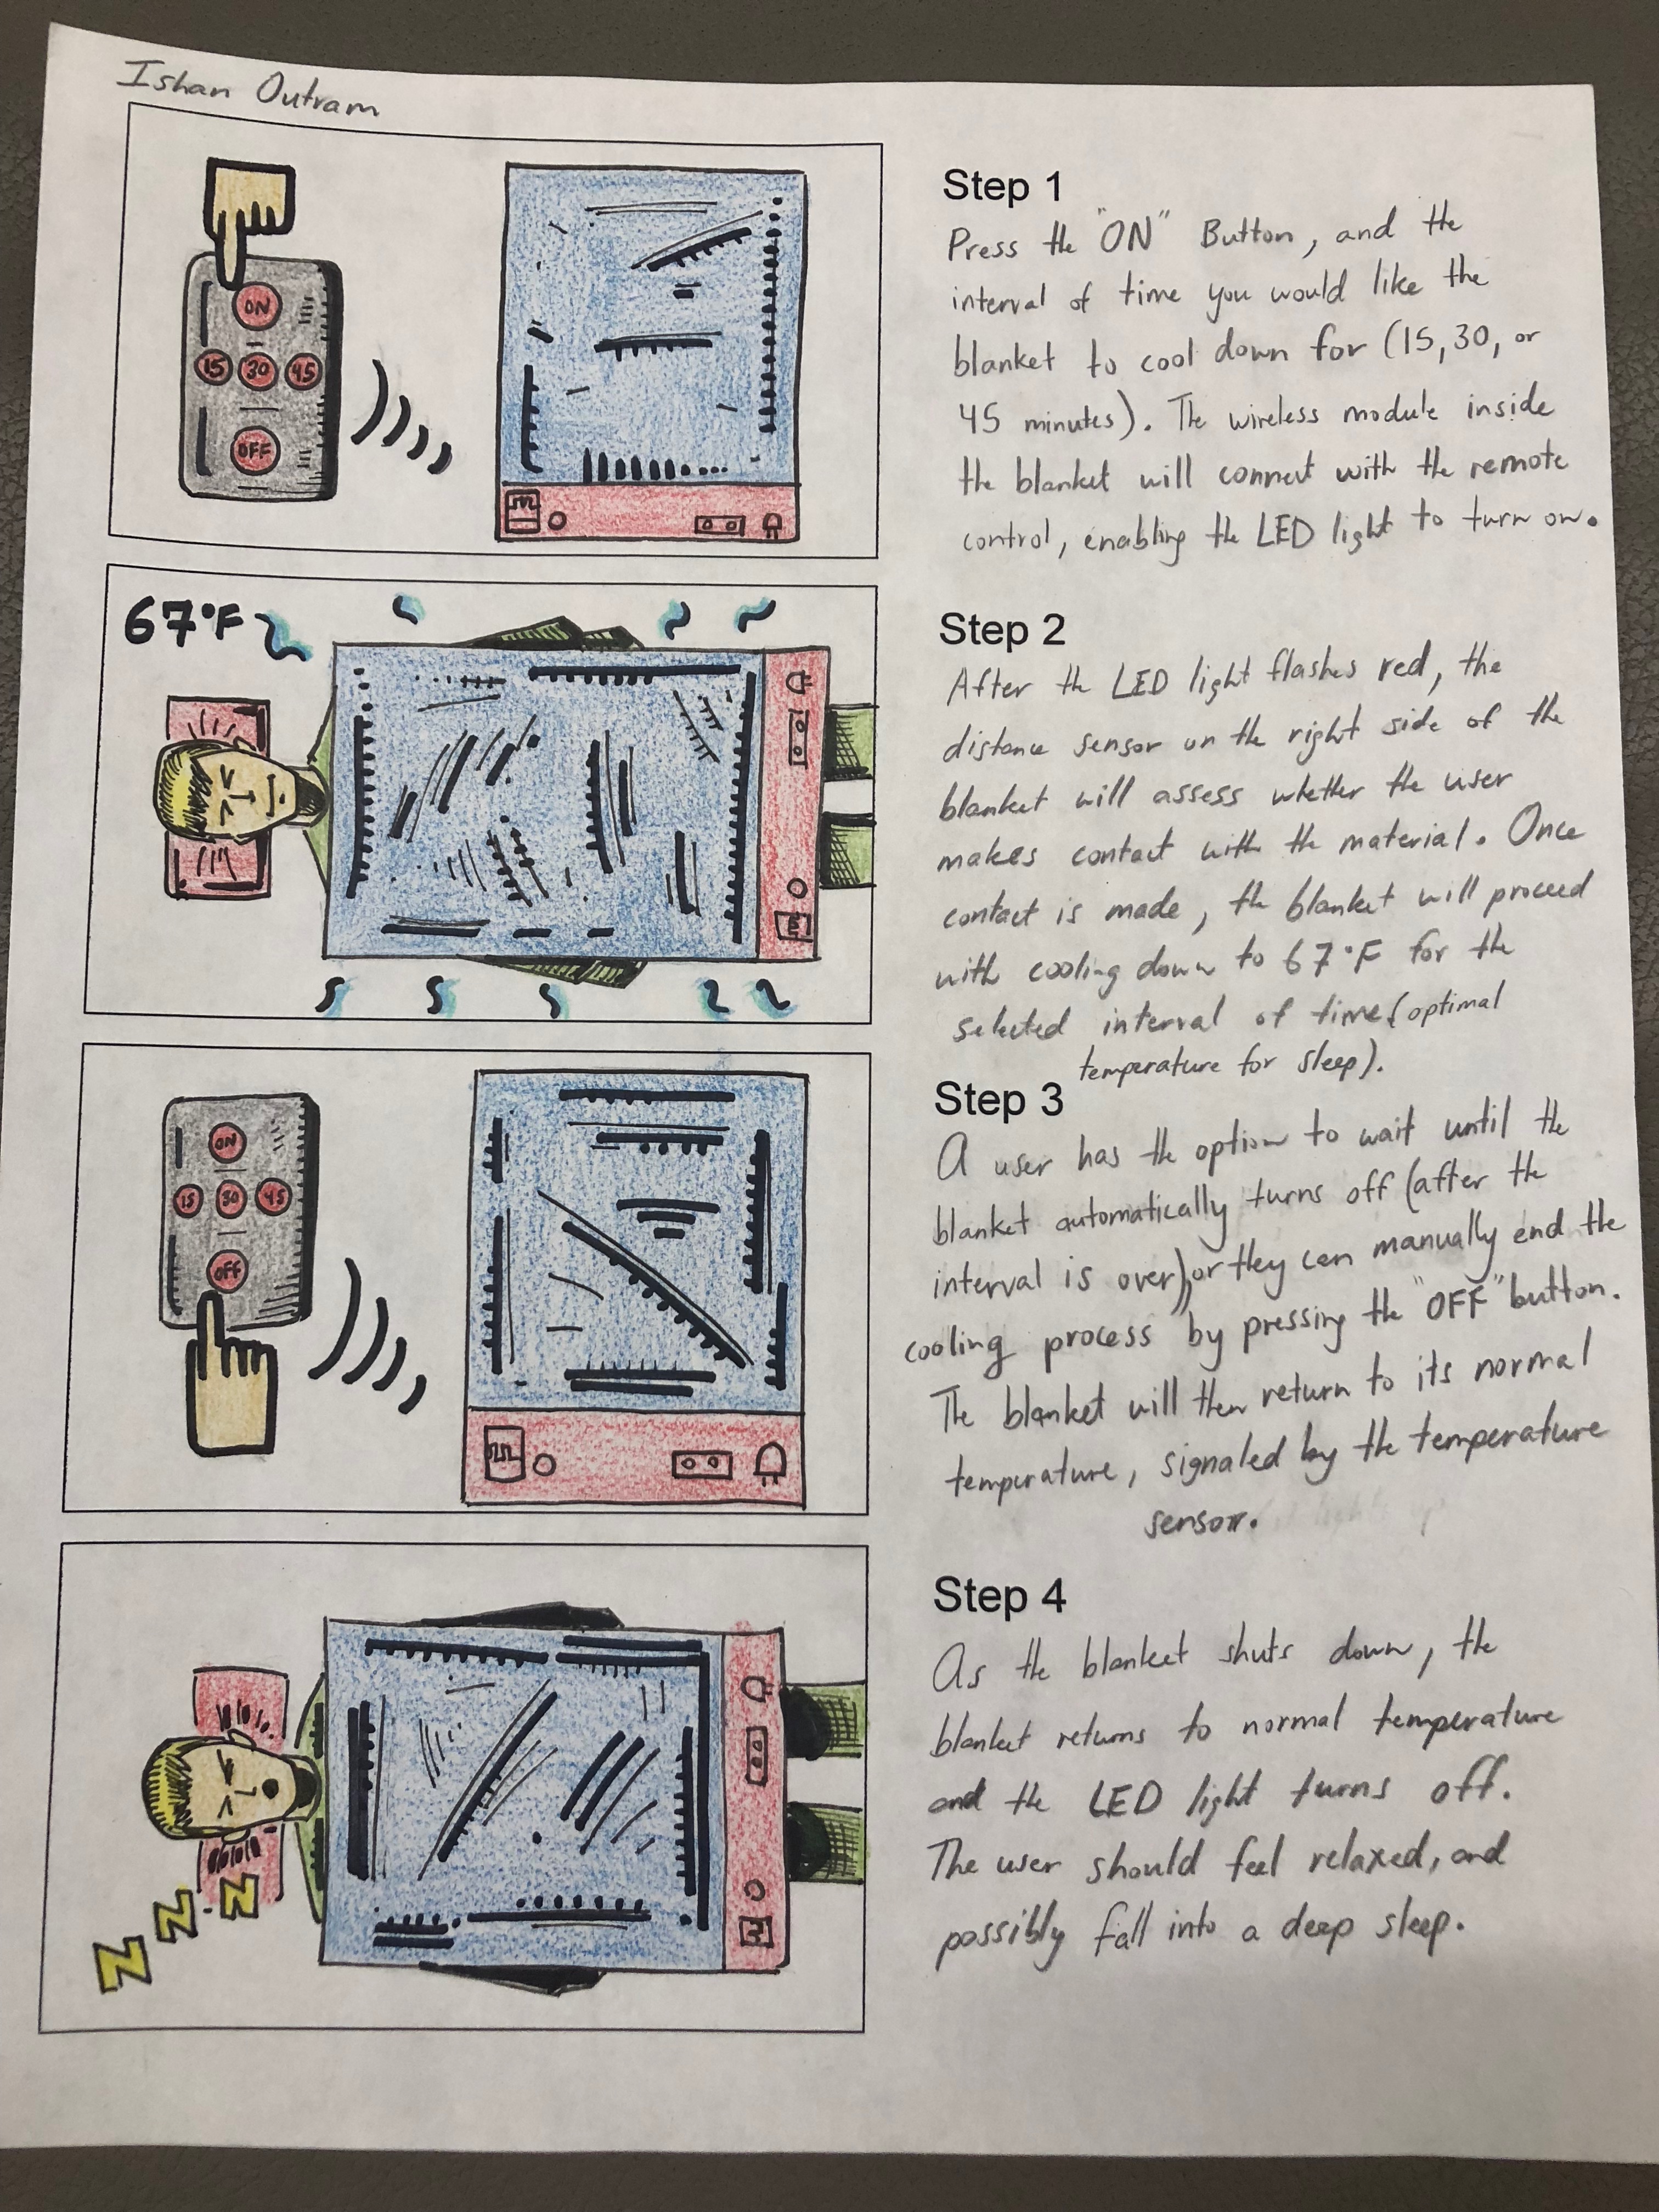 Ishan Outram
ON
15 30 45
OFF
Step 1
Press the "ON" Button, and the
interval of time you would like the
blanket to cool down for (15, 30, or
45 minutes). The wireless module inside
the blanket will connect with the remote
control, enabling the LED light to turn on.
67°F
Step 2
After the LED light flashes red, the
distance sensor on the right side of the
blanket will assess whether the user
makes contact with the material. Once
contact is made, the blanket will proceed
with cooling down to 67°F for the
selected interval of time (optimal
temperature for sleep).
ON
15 30 45
OFF
Step 3
A user has the option to wait until the
blanket automatically turns off (after the
interval is over), or they can manually end the
cooling process by pressing the "OFF" button.
The blanket will then return to its normal
temperature, signaled by the temperature
sensor.
Z Z Z
Step 4
As the blanket shuts down, the
blanket returns to normal temperature
and the LED light turns off.
The user should feel relaxed, and
possibly fall into a deep sleep.